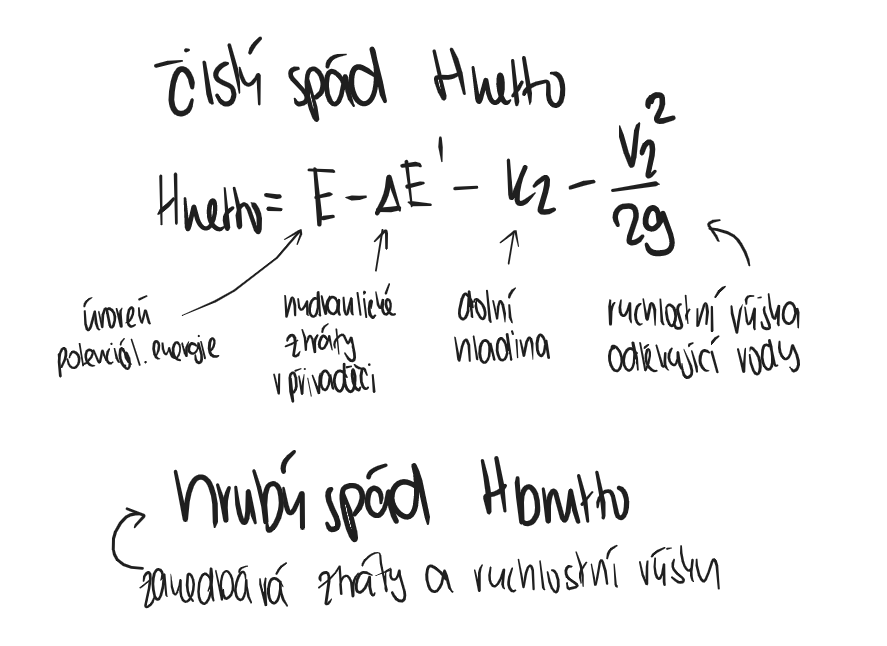 čistý spád Hnetto
Hnetto = E - ΔE' - K2 - V2²/2g
úroveň
potenciál. energie
hydraulické
ztráty
v přivaděči
dolní
hladina
rychlostní výška
odtékající vody
hrubý spád Hbrutto
zanedbává ztráty a rychlostní výšku